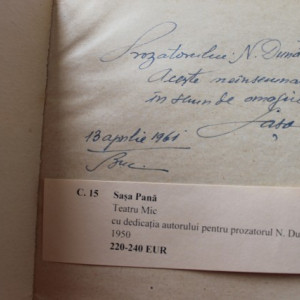 Prozatorului N. Dună
Aceste neînsemna
în semn de omagiu
Sașa
13 aprilie 1961
Buc.
C. 15 Sașa Pană
Teatru Mic
cu dedicația autorului pentru prozatorul N. Du
1950
220-240 EUR